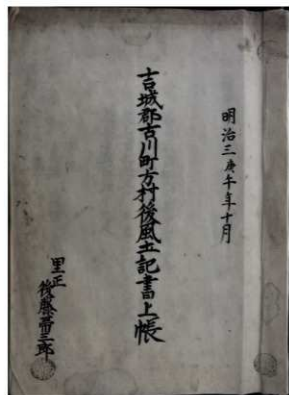 明治三庚午年十月
吉城郡古川町方村後風土記書上帳
里正
後藤重三郎